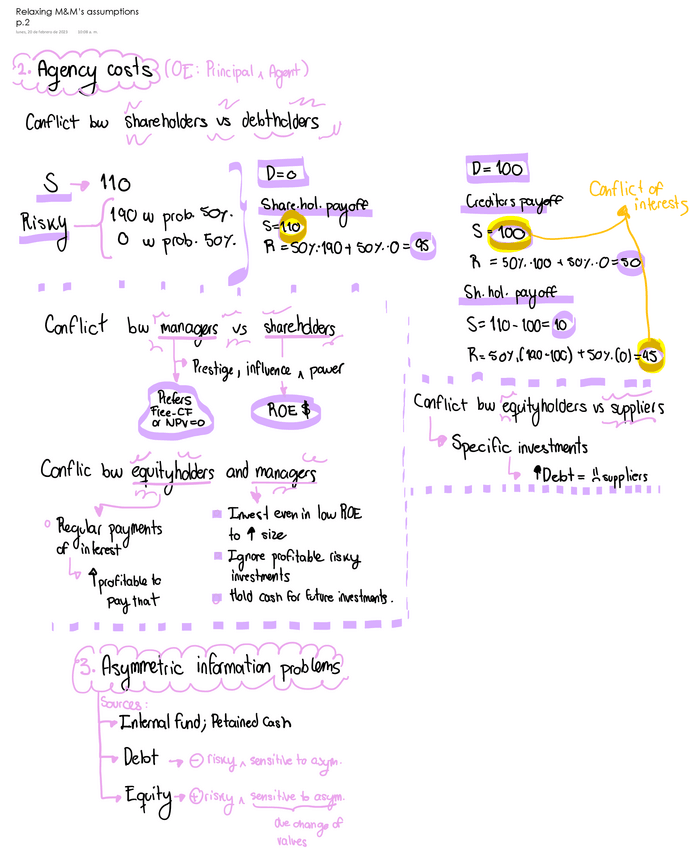 Relaxing M&M's assumptions
p.2
lunes, 20 de febrero de 2023
2. Agency costs (OE: Principal ∧ Agent)
Conflict bw shareholders vs debtholders
S → 110
Risky
190 w prob. 50%.
0 w prob. 50%.
D=0
Share.hol. payoff
S=110
R = 50%·190 + 50%·0 = 95
D = 100
Creditors payoff
S = 100
R = 50%·100 + 50%·0 = 50
Sh. hol. payoff
S = 110 - 100 = 10
R = 50%·(190-100) + 50%·(0) = 45
Conflict of
interests
Conflict bw managers vs shareholders
Prestige, influence ∧ power
Prefers
Free-CF
or NPV=0
ROE $
Conflict bw equityholders vs suppliers
Specific investments
↑Debt = suppliers
Conflic bw equityholders and managers
Regular payments
of interest
↑profitable to
pay that
Invest even in low ROE
to ↑ size
Ignore profitable risky
investments
Hold cash for future investments.
3. Asymmetric information problems
Sources:
Internal fund; Retained Cash
Debt → ⊖ risky ∧ sensitive to asym.
Equity → ⊕ risky ∧ sensitive to asym.
due change of
values